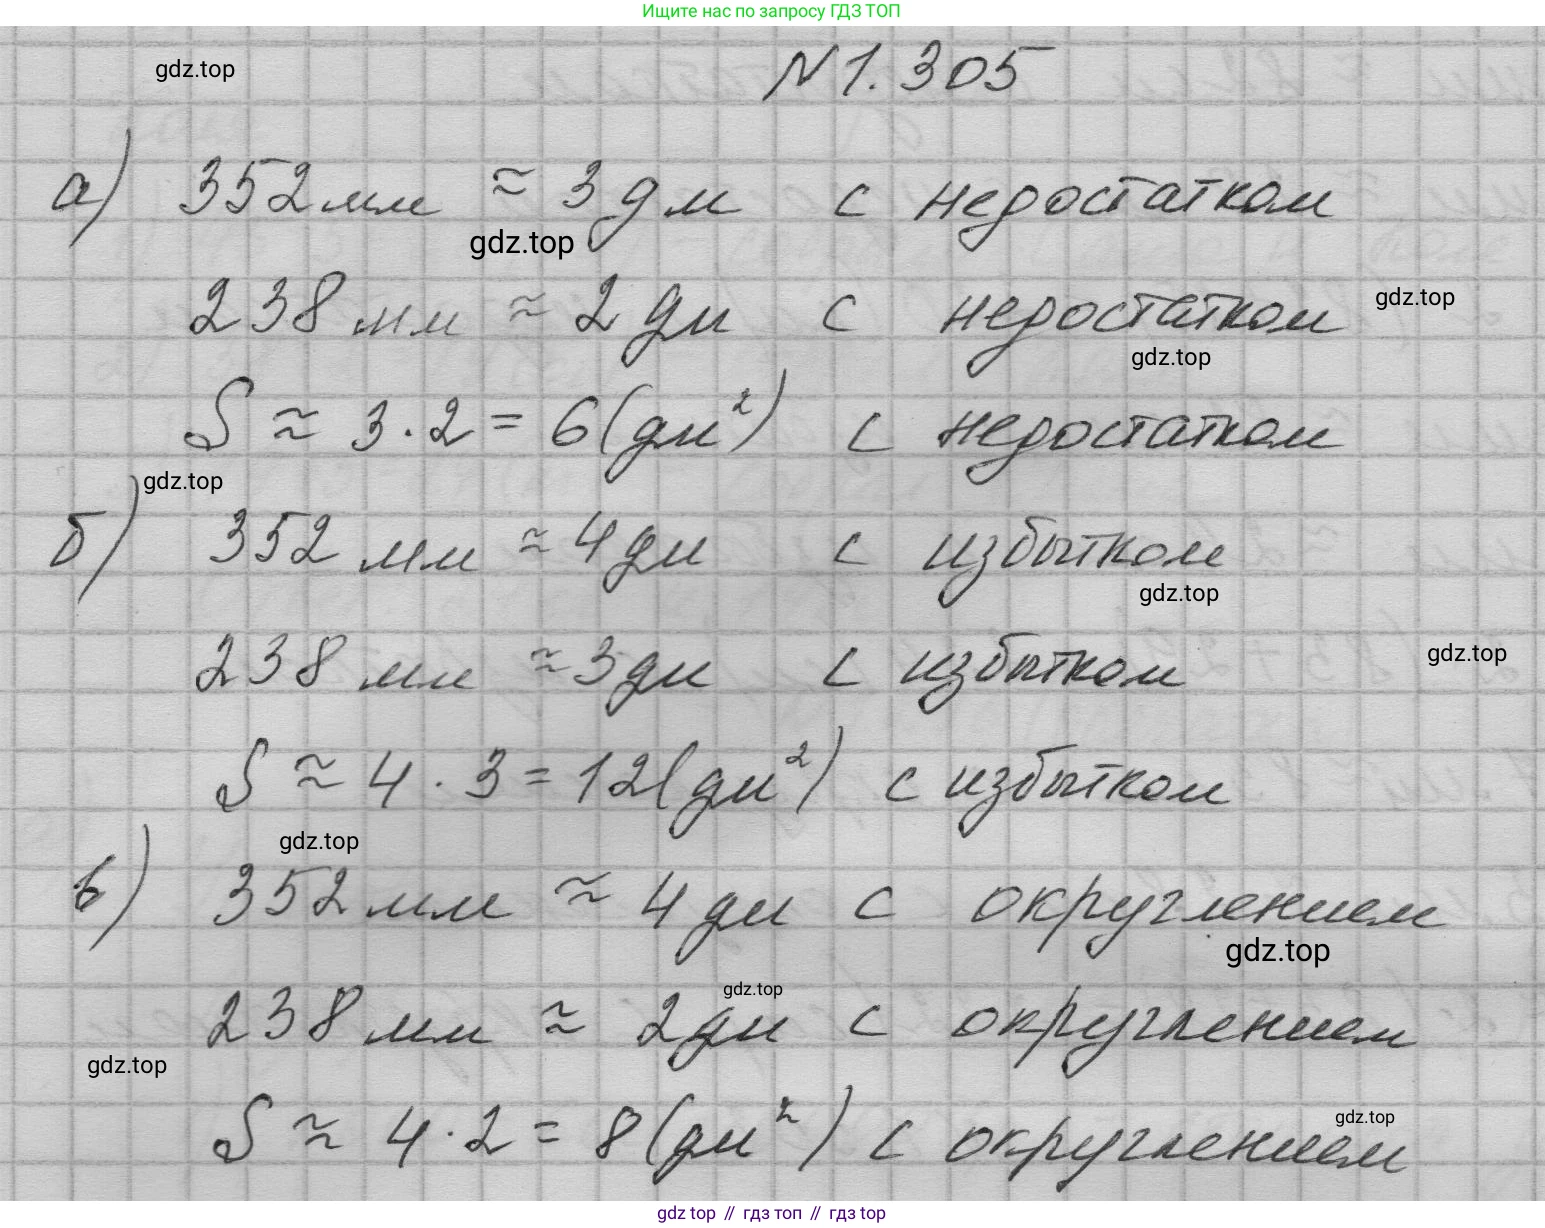 Ищите нас по запросу ГДЗ ТОП
gdz.top
N 1.305
а) 352 мм ≈ 3 дм с недостатком
gdz.top
238 мм ≈ 2 дм с недостатком
gdz.top
gdz.top
S ≈ 3 · 2 = 6 (дм²) с недостатком
gdz.top
б) 352 мм ≈ 4 дм с избытком
gdz.top
238 мм ≈ 3 дм с избытком
gdz.top
S ≈ 4 · 3 = 12 (дм²) с избытком
gdz.top
в) 352 мм ≈ 4 дм с округлением
gdz.top
gdz.top
238 мм ≈ 2 дм с округлением
gdz.top
gdz.top
S ≈ 4 · 2 = 8 (дм²) с округлением
gdz top // гдз топ // гдз top